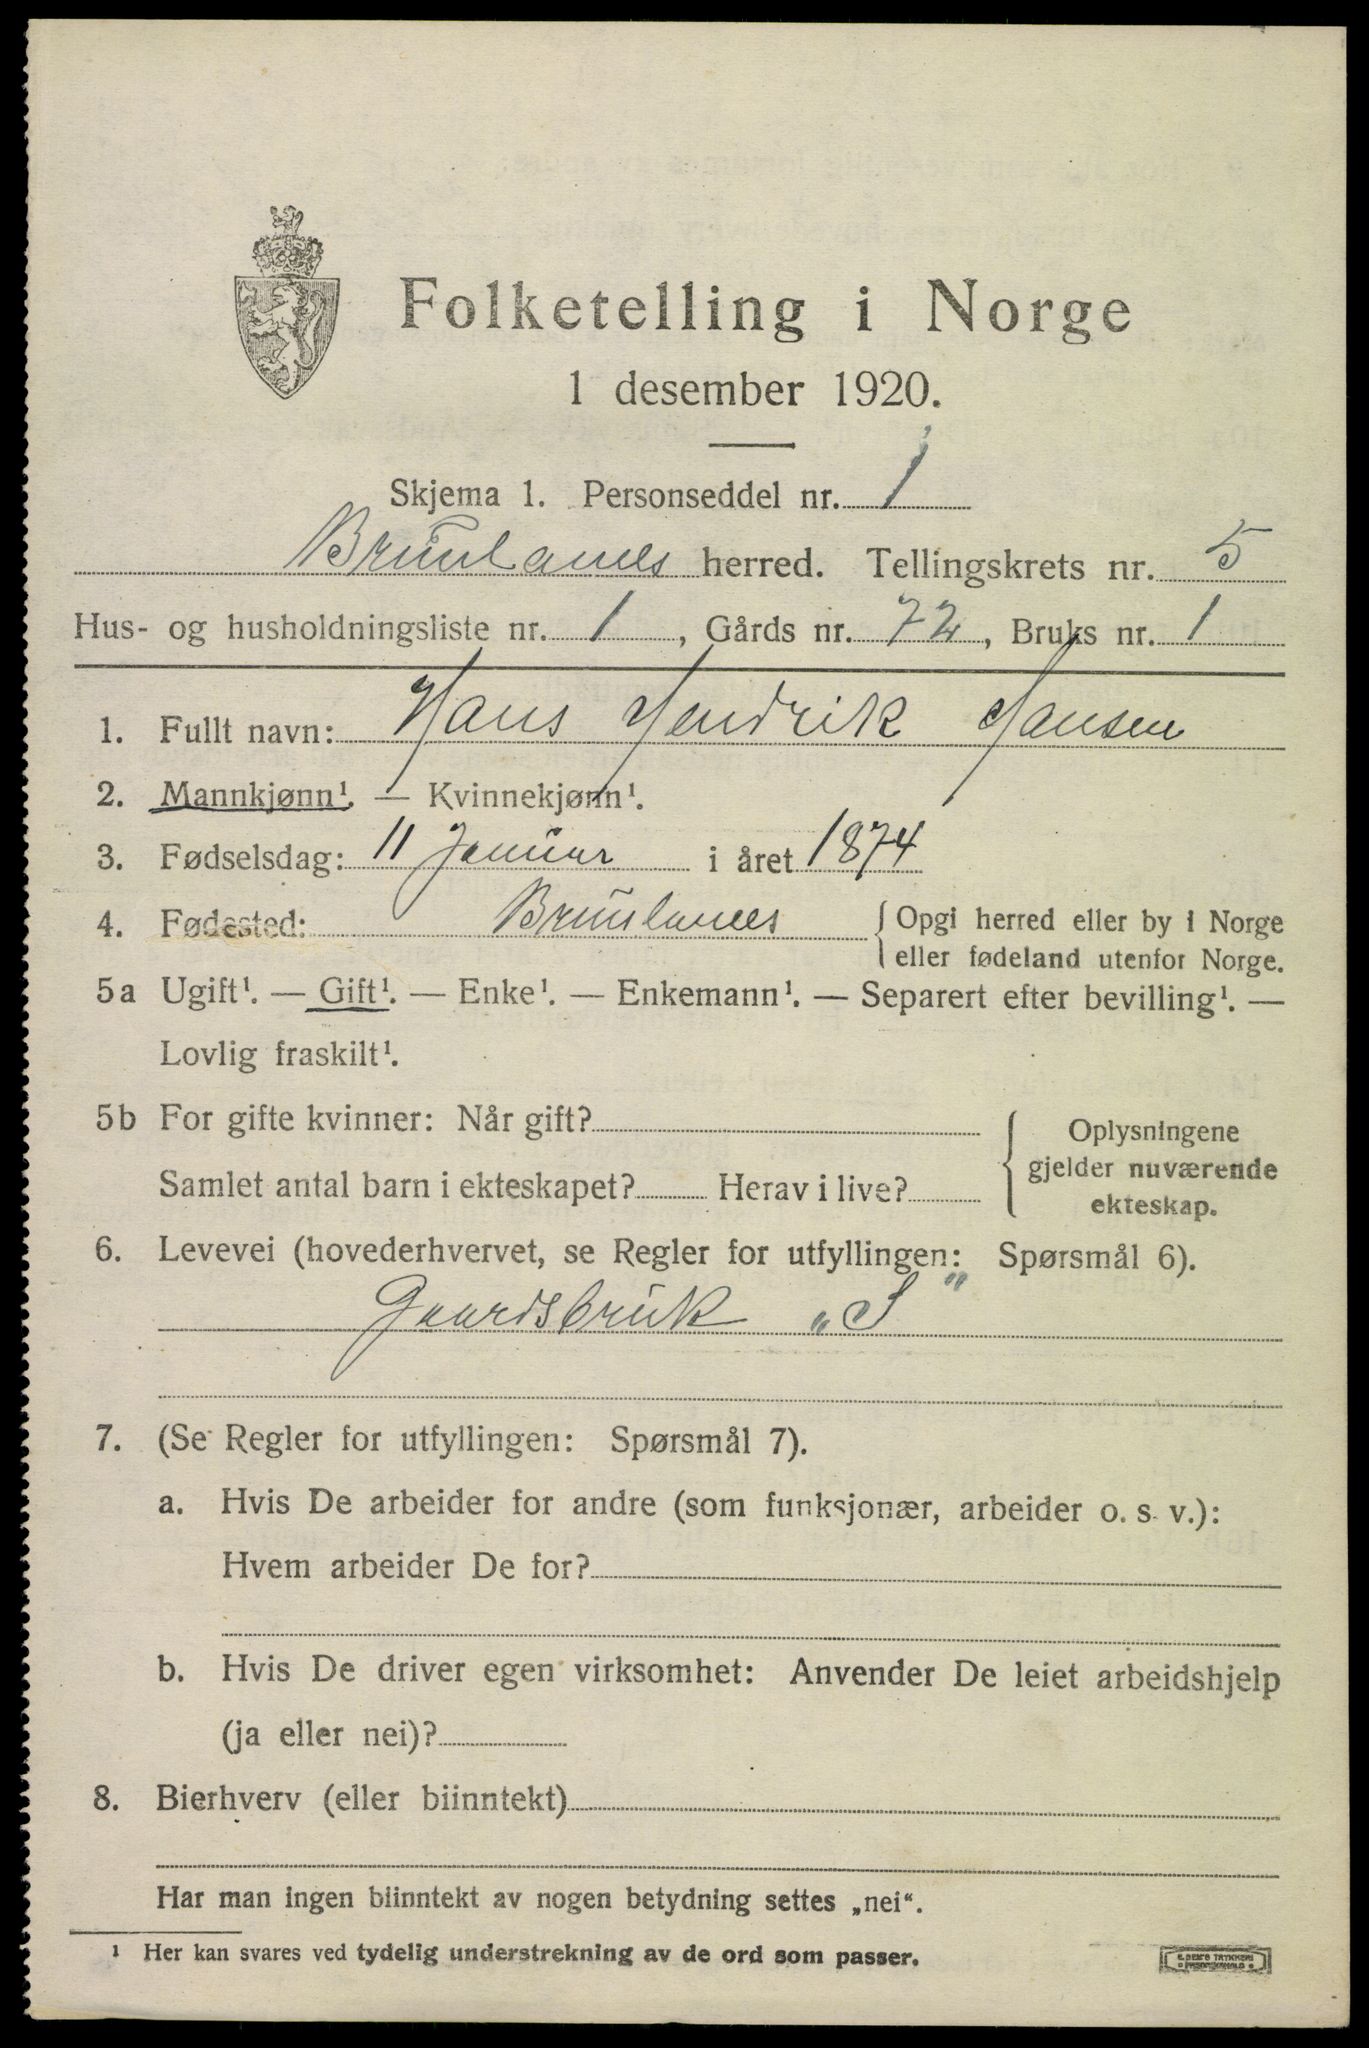 Folketelling i Norge
1 desember 1920.
Skjema 1. Personseddel nr. 1
Brunlanes herred. Tellingskrets nr. 5
Hus- og husholdningsliste nr. 1, Gårds nr. 72, Bruks nr. 1
1. Fullt navn: Hans Hendrik Hansen
2. Mannkjønn¹. — Kvinnekjønn¹.
3. Fødselsdag: 11 Januar i året 1874
4. Fødested: Brunlanes { Opgi herred eller by i Norge
eller fødeland utenfor Norge.
5a Ugift¹. — Gift¹. — Enke¹. — Enkemann¹. — Separert efter bevilling¹. —
Lovlig fraskilt¹.
5b For gifte kvinner: Når gift? { Oplysningene
gjelder nuværende
Samlet antal barn i ekteskapet? Herav i live?
ekteskap.
6. Levevei (hovederhvervet, se Regler for utfyllingen: Spørsmål 6).
Gaardsbruk „S“
7. (Se Regler for utfyllingen: Spørsmål 7).
a. Hvis De arbeider for andre (som funksjonær, arbeider o. s. v.):
Hvem arbeider De for?
b. Hvis De driver egen virksomhet: Anvender De leiet arbeidshjelp
(ja eller nei)?
8. Bierhverv (eller biinntekt)
Har man ingen biinntekt av nogen betydning settes „nei“.
¹ Her kan svares ved tydelig understrekning av de ord som passer.